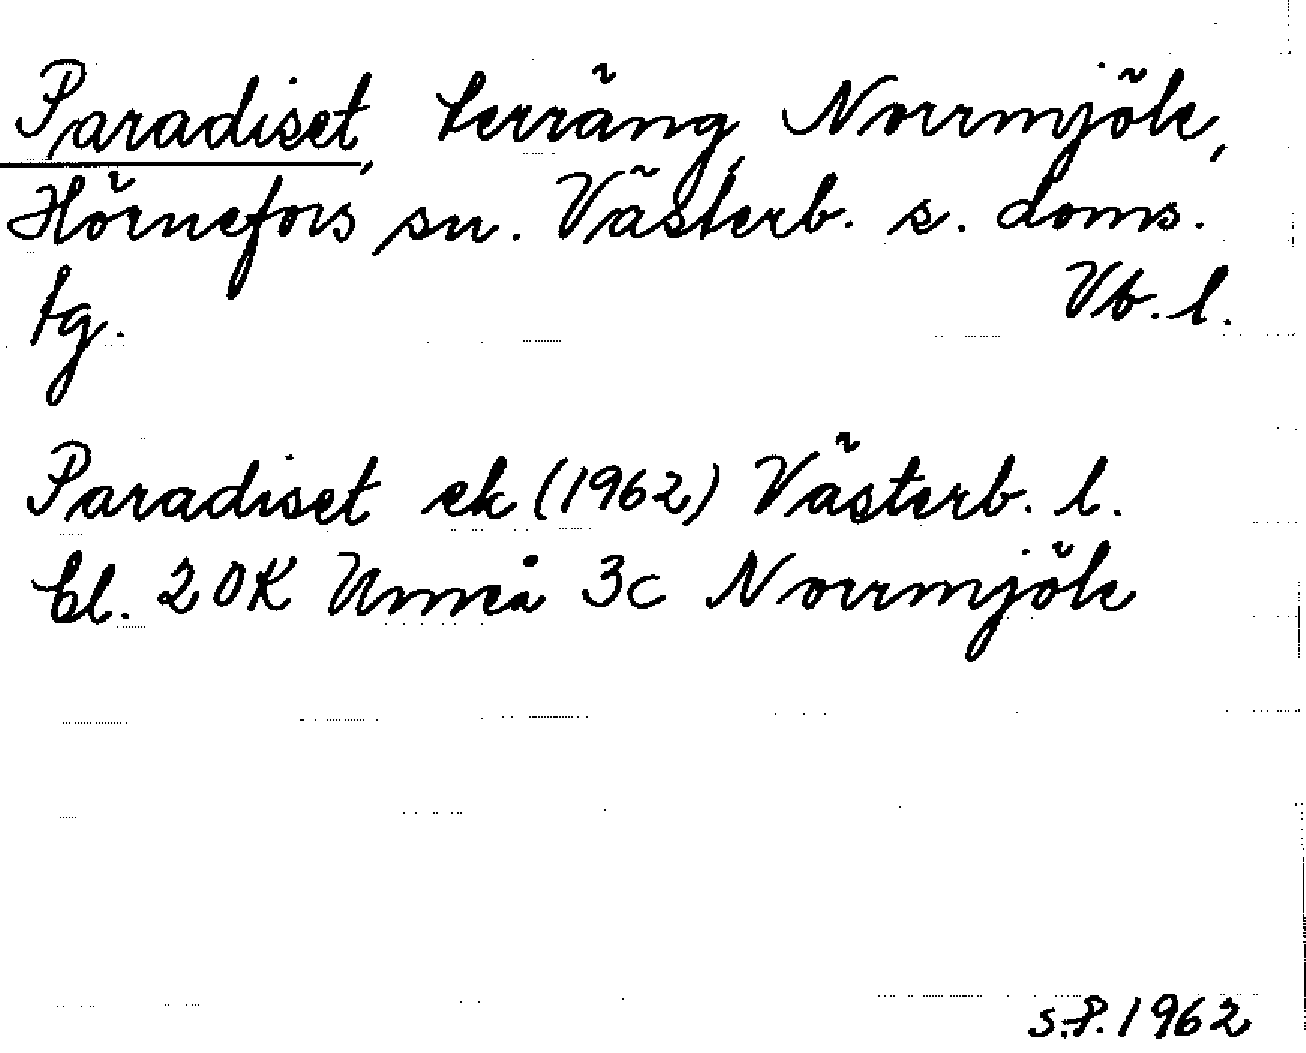 Paradiset, terräng, Norrmjöle,
Hörnefors sn. Västerb. s. doms.
tg. Vb. l.
Paradiset ek (1962) Västerb. l.
bl. 20K Umeå 3c Norrmjöle
s.P. 1962